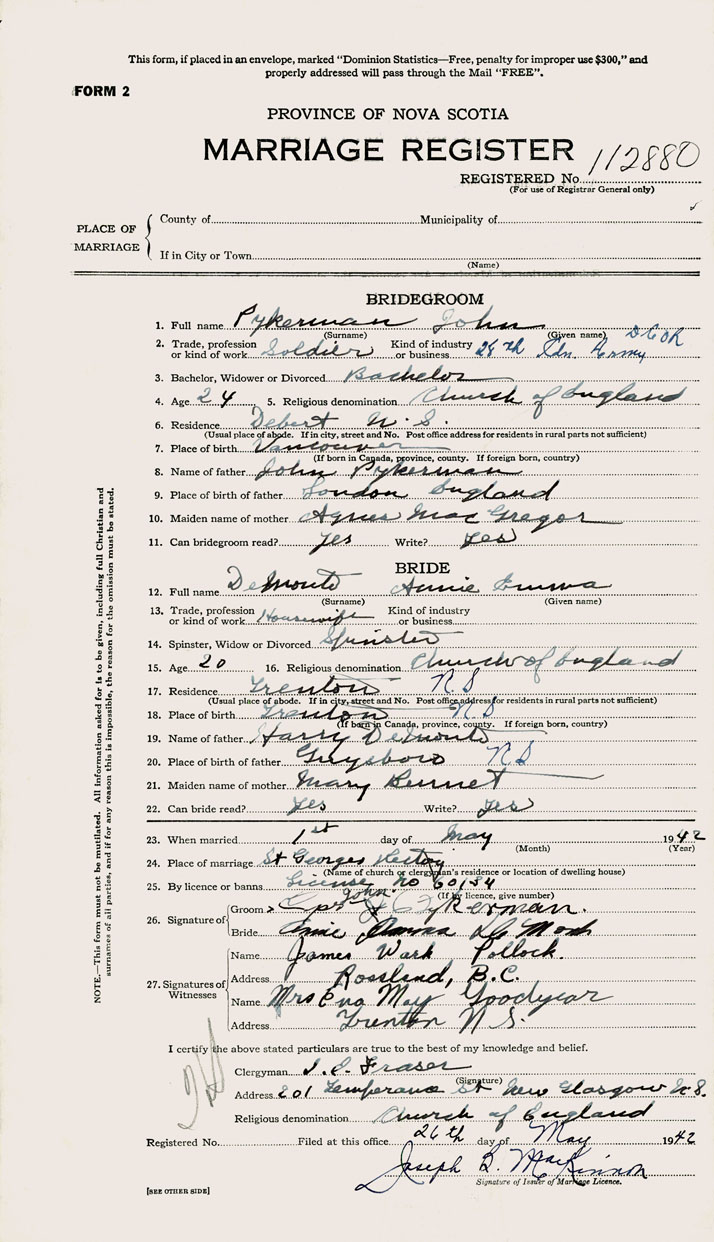 This form, if placed in an envelope, marked "Dominion Statistics—Free, penalty for improper use $300," and
properly addressed will pass through the Mail "FREE".
FORM 2
PROVINCE OF NOVA SCOTIA
MARRIAGE REGISTER 112880
REGISTERED No.
(For use of Registrar General only)
PLACE OF MARRIAGE
County of Municipality of
If in City or Town
(Name)
BRIDEGROOM
1. Full name Pykerman John
(Surname) (Given name)
2. Trade, profession or kind of work Soldier Kind of industry or business 28th Cdn. Army DCOR
3. Bachelor, Widower or Divorced Bachelor
4. Age 24 5. Religious denomination Church of England
6. Residence Debert N.S.
(Usual place of abode. If in city, street and No. Post office address for residents in rural parts not sufficient)
7. Place of birth Vancouver
(If born in Canada, province, county. If foreign born, country)
8. Name of father John Pykerman
9. Place of birth of father London England
10. Maiden name of mother Agnes MacGregor
11. Can bridegroom read? Yes Write? Yes
BRIDE
12. Full name DeMonte Annie Emma
(Surname) (Given name)
13. Trade, profession or kind of work Housewife Kind of industry or business
14. Spinster, Widow or Divorced Spinster
15. Age 20 16. Religious denomination Church of England
17. Residence Trenton N.S
(Usual place of abode. If in city, street and No. Post office address for residents in rural parts not sufficient)
18. Place of birth Trenton N.S
(If born in Canada, province, county. If foreign born, country)
19. Name of father Harry DeMonte
20. Place of birth of father Guysboro N.S
21. Maiden name of mother Mary Burnet
22. Can bride read? Yes Write? Yes
23. When married 1st day of May 1942
(Month) (Year)
24. Place of marriage St Georges Rectory
(Name of church or clergyman's residence or location of dwelling house)
25. By licence or banns License no 60134
(If by licence, give number)
26. Signature of
Groom John Pykerman.
Bride Annie Emma De Mont
27. Signatures of Witnesses
Name James Wark Pollock.
Address Rossland, B.C.
Name Mrs Ena May Goodyear
Address Trenton N.S.
I certify the above stated particulars are true to the best of my knowledge and belief.
Clergyman Fraser
(Signature)
Address 201 Temperance St New Glasgow N.S.
Religious denomination Church of England
Registered No. Filed at this office 26th day of May 1942
Joseph B. MacKinnon
Signature of Issuer of Marriage Licence.
[SEE OTHER SIDE]
NOTE.—This form must not be mutilated. All information asked for is to be given, including full Christian and
surnames of all parties, and if for any reason this is impossible, the reason for the omission must be stated.